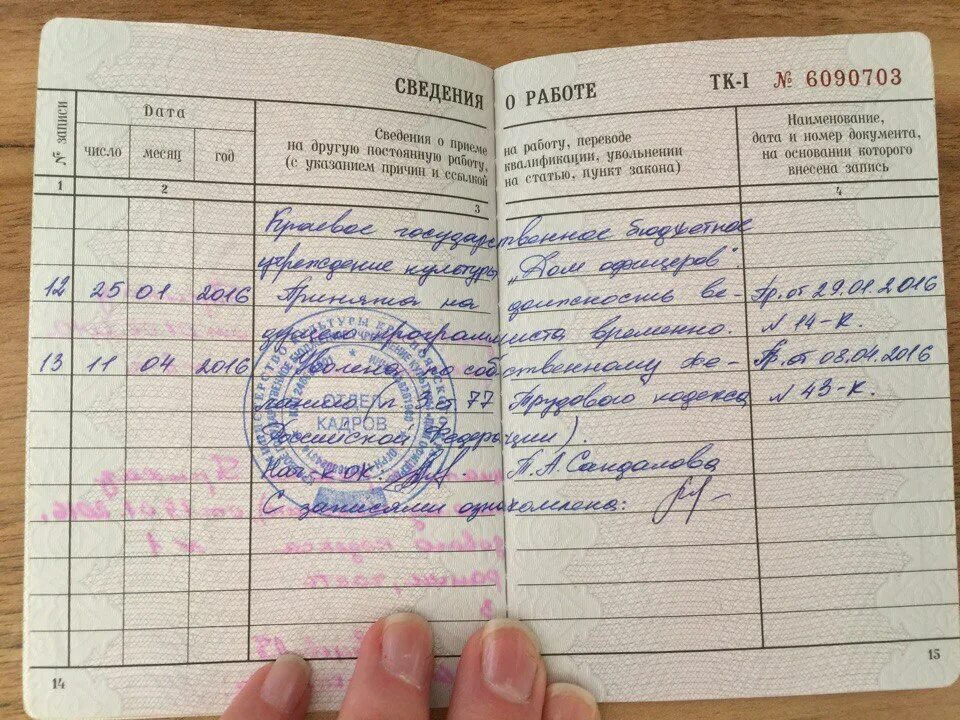 СВЕДЕНИЯ О РАБОТЕ ТК-I № 6090703
№ записи
Дата
число месяц год
Сведения о приеме на работу, переводе
на другую постоянную работу, квалификации, увольнении
(с указанием причин и ссылкой на статью, пункт закона)
Наименование,
дата и номер документа,
на основании которого
внесена запись
1 2 3 4
Краевое государственное бюджетное
учреждение культуры „Дом офицеров".
12 25 01 2016 Принята на должность ве- Пр. от 29.01.2016
дущего программиста временно. N 14-к.
13 11 04 2016 Уволена по собственному же- Пр. от 08.04.2016
ланию п ст 77 Трудового кодекса N 43-к.
Российской Федерации).
Нач-к ОК. Т.А. Сандалова
С записями ознакомлена:
ОТДЕЛ
КАДРОВ
14
15